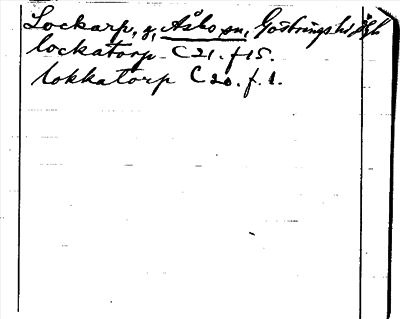 Lockarp, g, Åsbo sn, Göstrings hd, Ögl
lockatorp C 21. f 15.
lokkatorp C 20. f. 1.